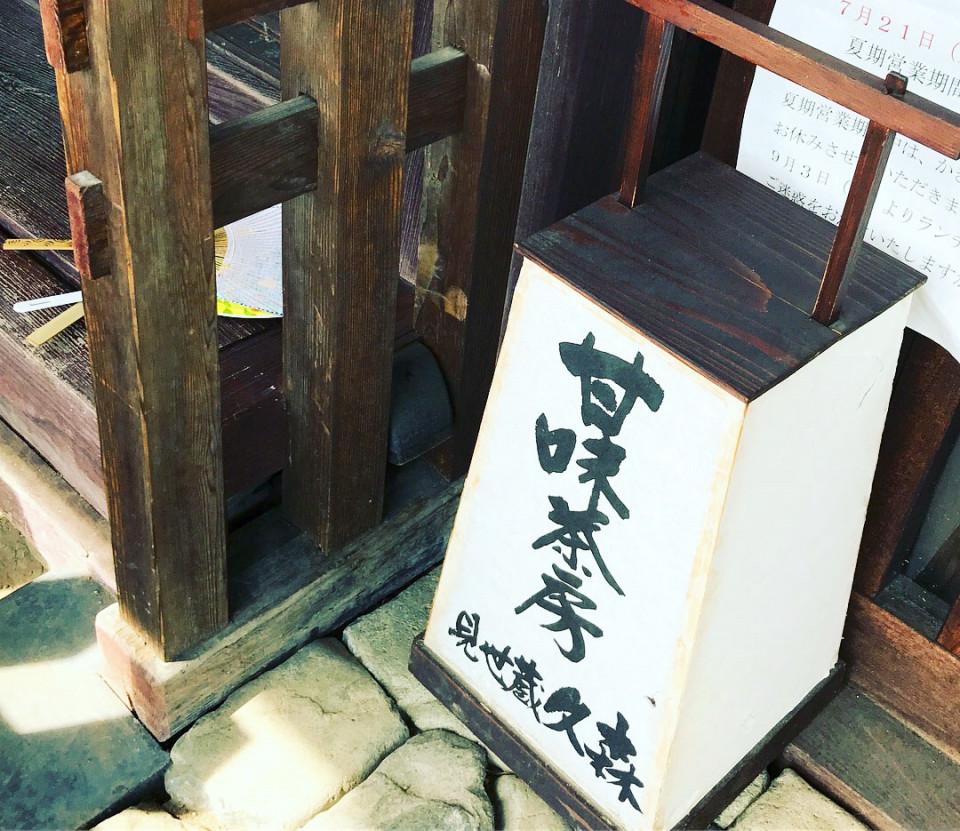 甘味茶房
見世蔵久森
7月21日（
夏期営業期間
夏期営業期
は、かき
お休みさせ
いただきま
9月3日（
よりランチ
ご迷惑をお
いたしますが